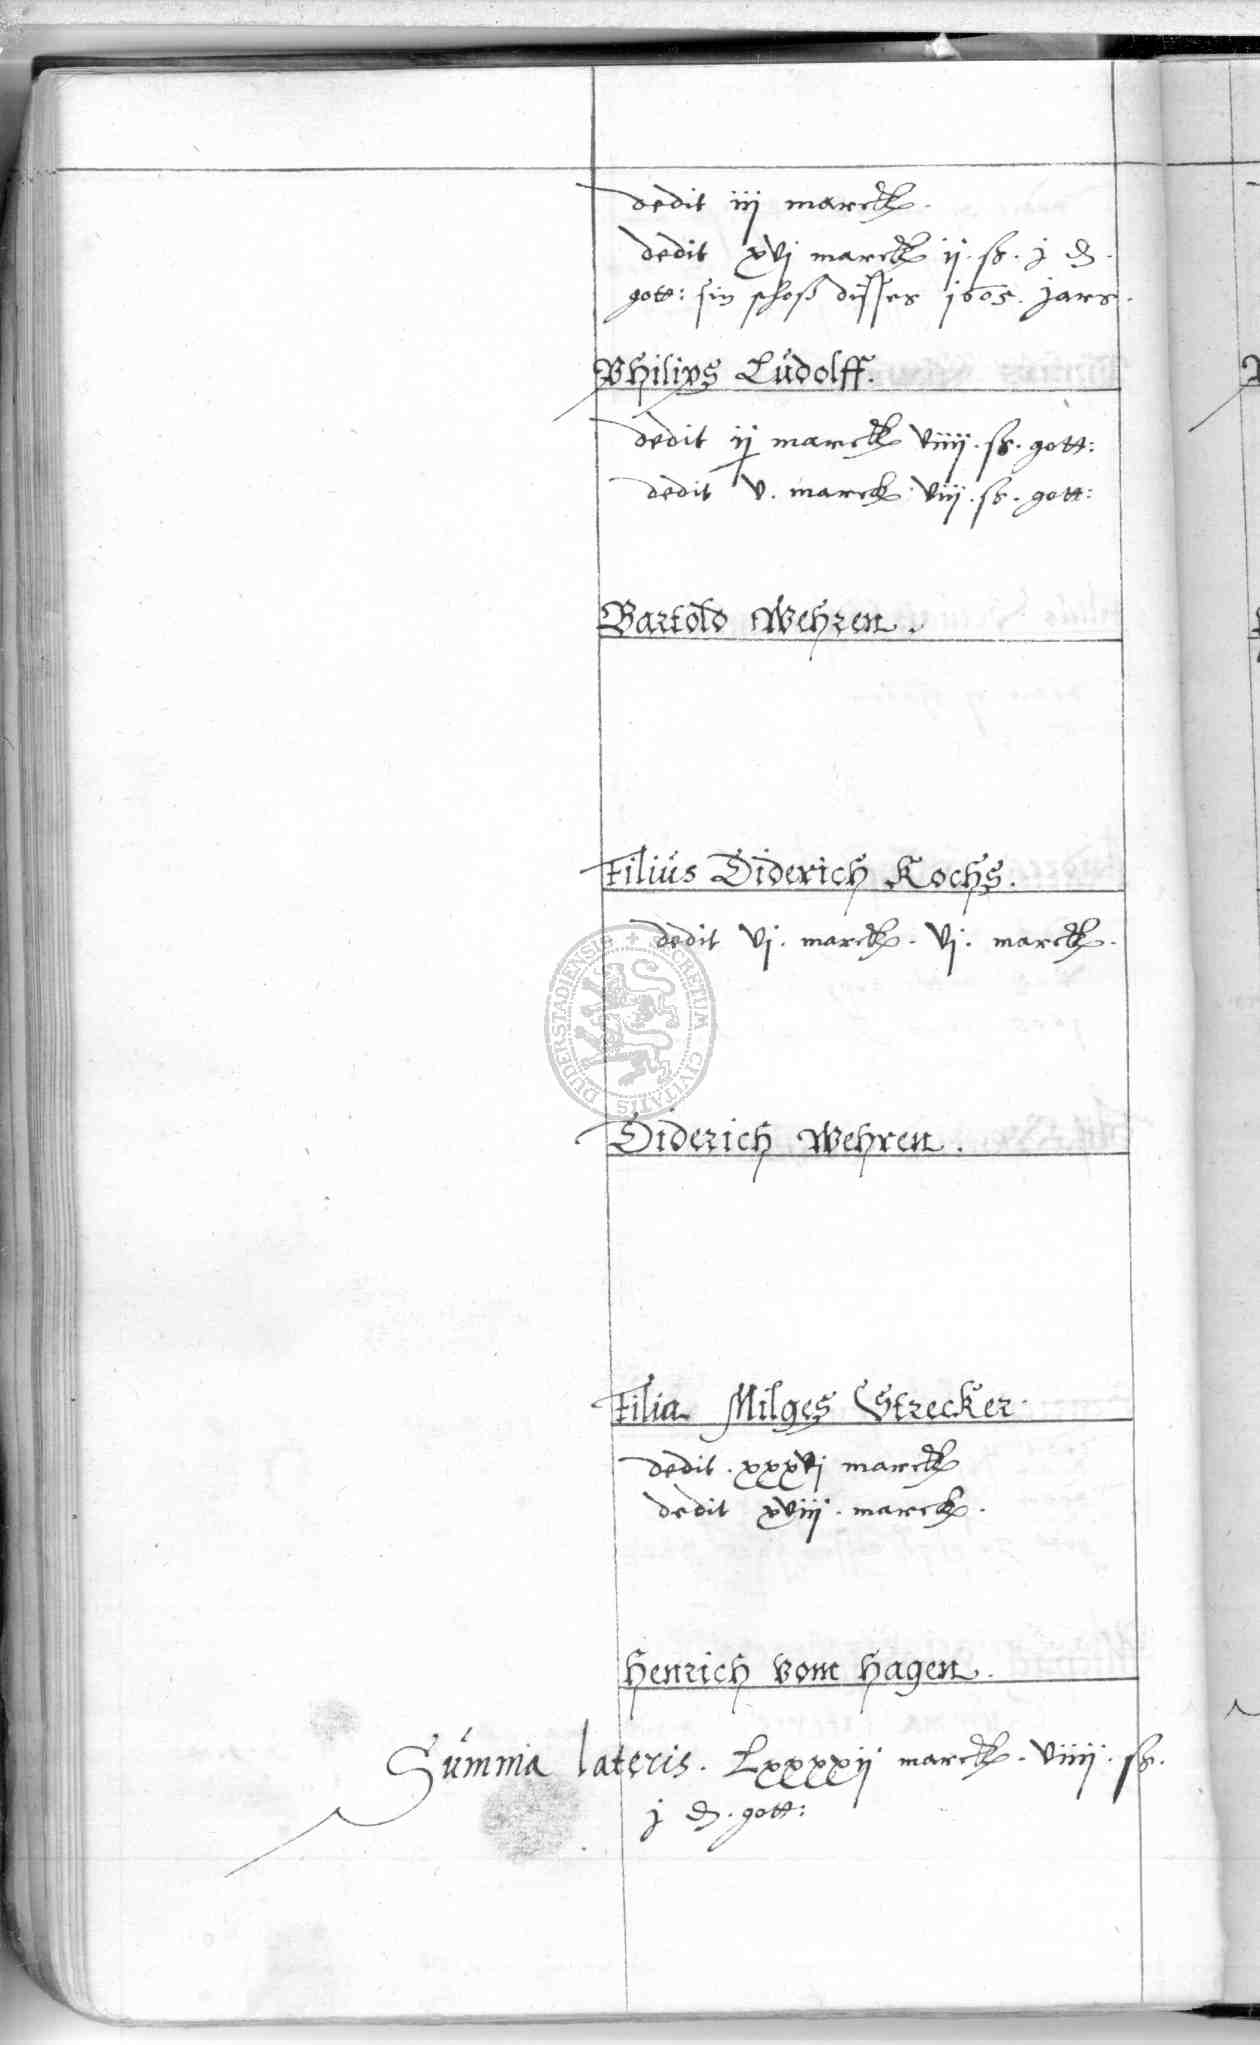 dedit iij marck.
dedit xvj marck ij. ß. j d.
gott: sin schoß disses 1605. jars.
Philips Ludolff.
dedit ij marck viiij. ß. gott:
dedit v. marck viij. ß. gott:
Bartold Wehren.
Filius Diderich Kochs.
dedit vj. marck. vj. marck.
DUDERSTADIENSIS SECRETUM CIVITATIS
Diderich Wehren.
Filia Milges Strecker.
dedit. xxxvj marck
dedit xviij. marck.
Henrich vom Hagen.
Summa lateris. Lxxxxij marck. viiij. ß.
j d. gott: